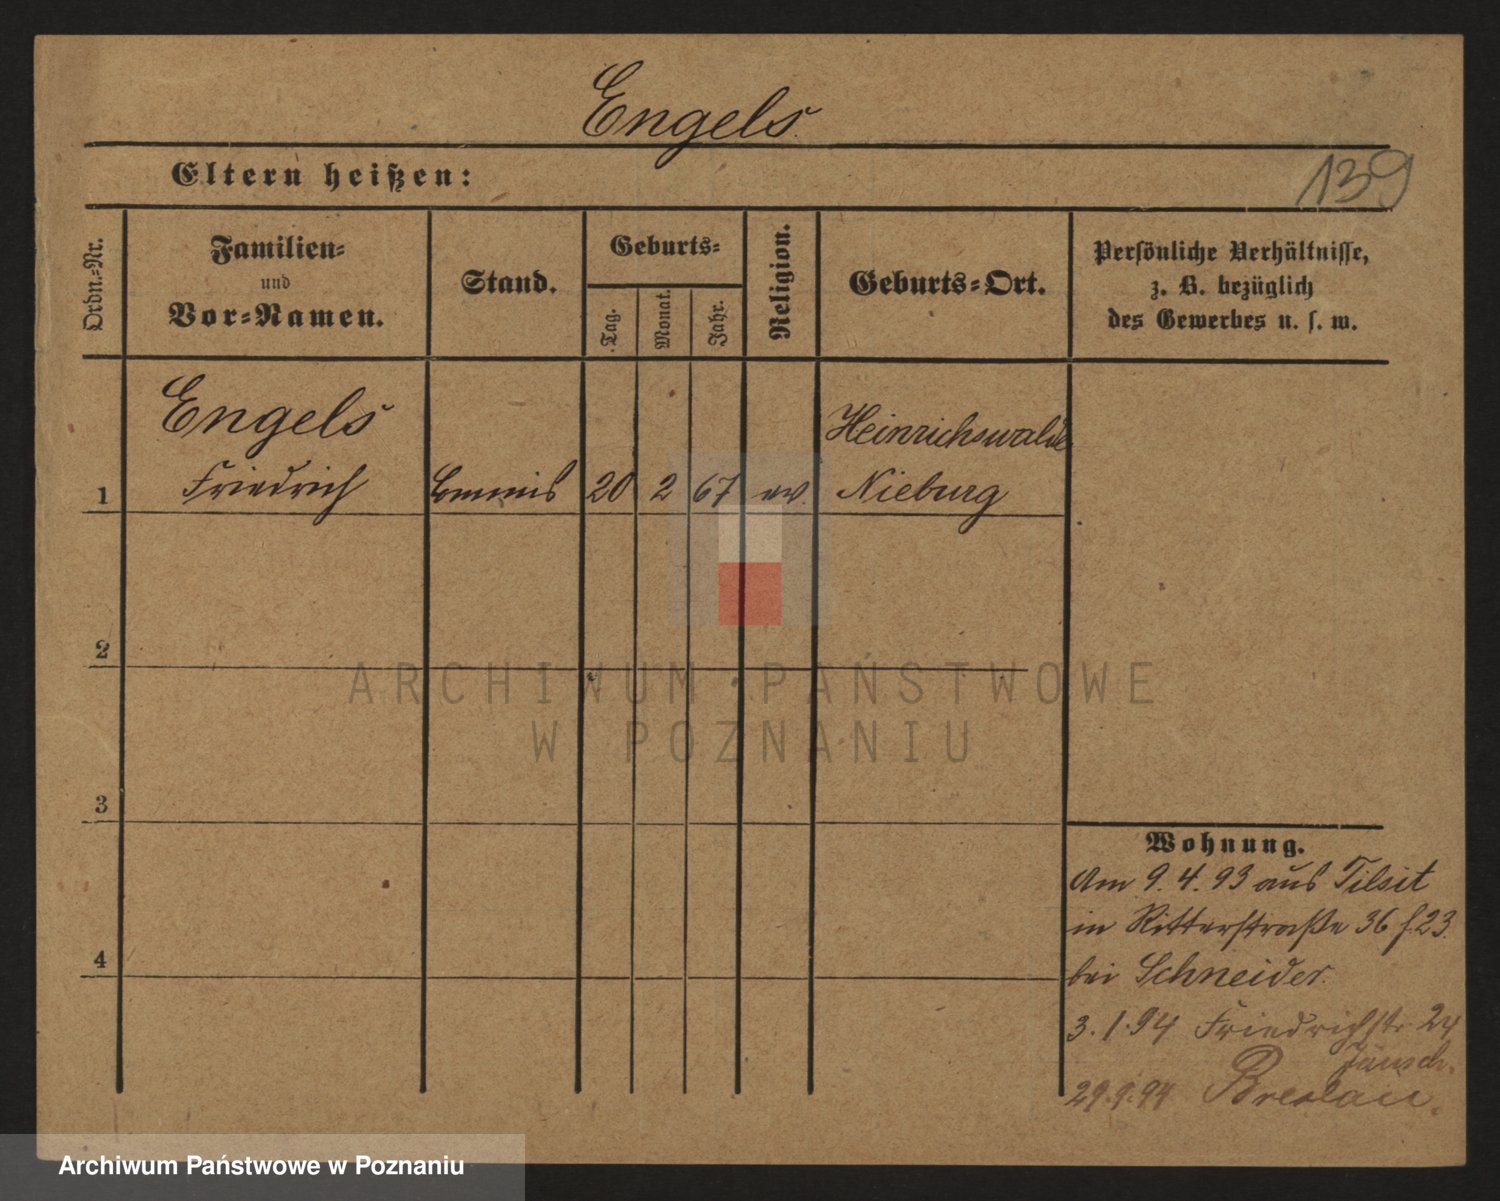 Engels.
139
Eltern heißen:
Ordn.-Nr.
Familien-
und
Vor-Namen.
Stand.
Geburts-
Tag.
Monat.
Jahr.
Religion.
Geburts-Ort.
Persönliche Verhältnisse,
z. B. bezüglich
des Gewerbes u. s. w.
Engels
Heinrichswalde
1 Friedrich Commis 20 2 67 ev. Nieburg
2
ARCHIWUM PAŃSTWOWE
W POZNANIU
3
Wohnung.
Am 9.4.93 aus Tilsit
in Ritterstraße 36 f. 23.
bei Schneider.
4
3.1.94 Friedrichstr 24
29.9.94 Breslau.
Archiwum Państwowe w Poznaniu